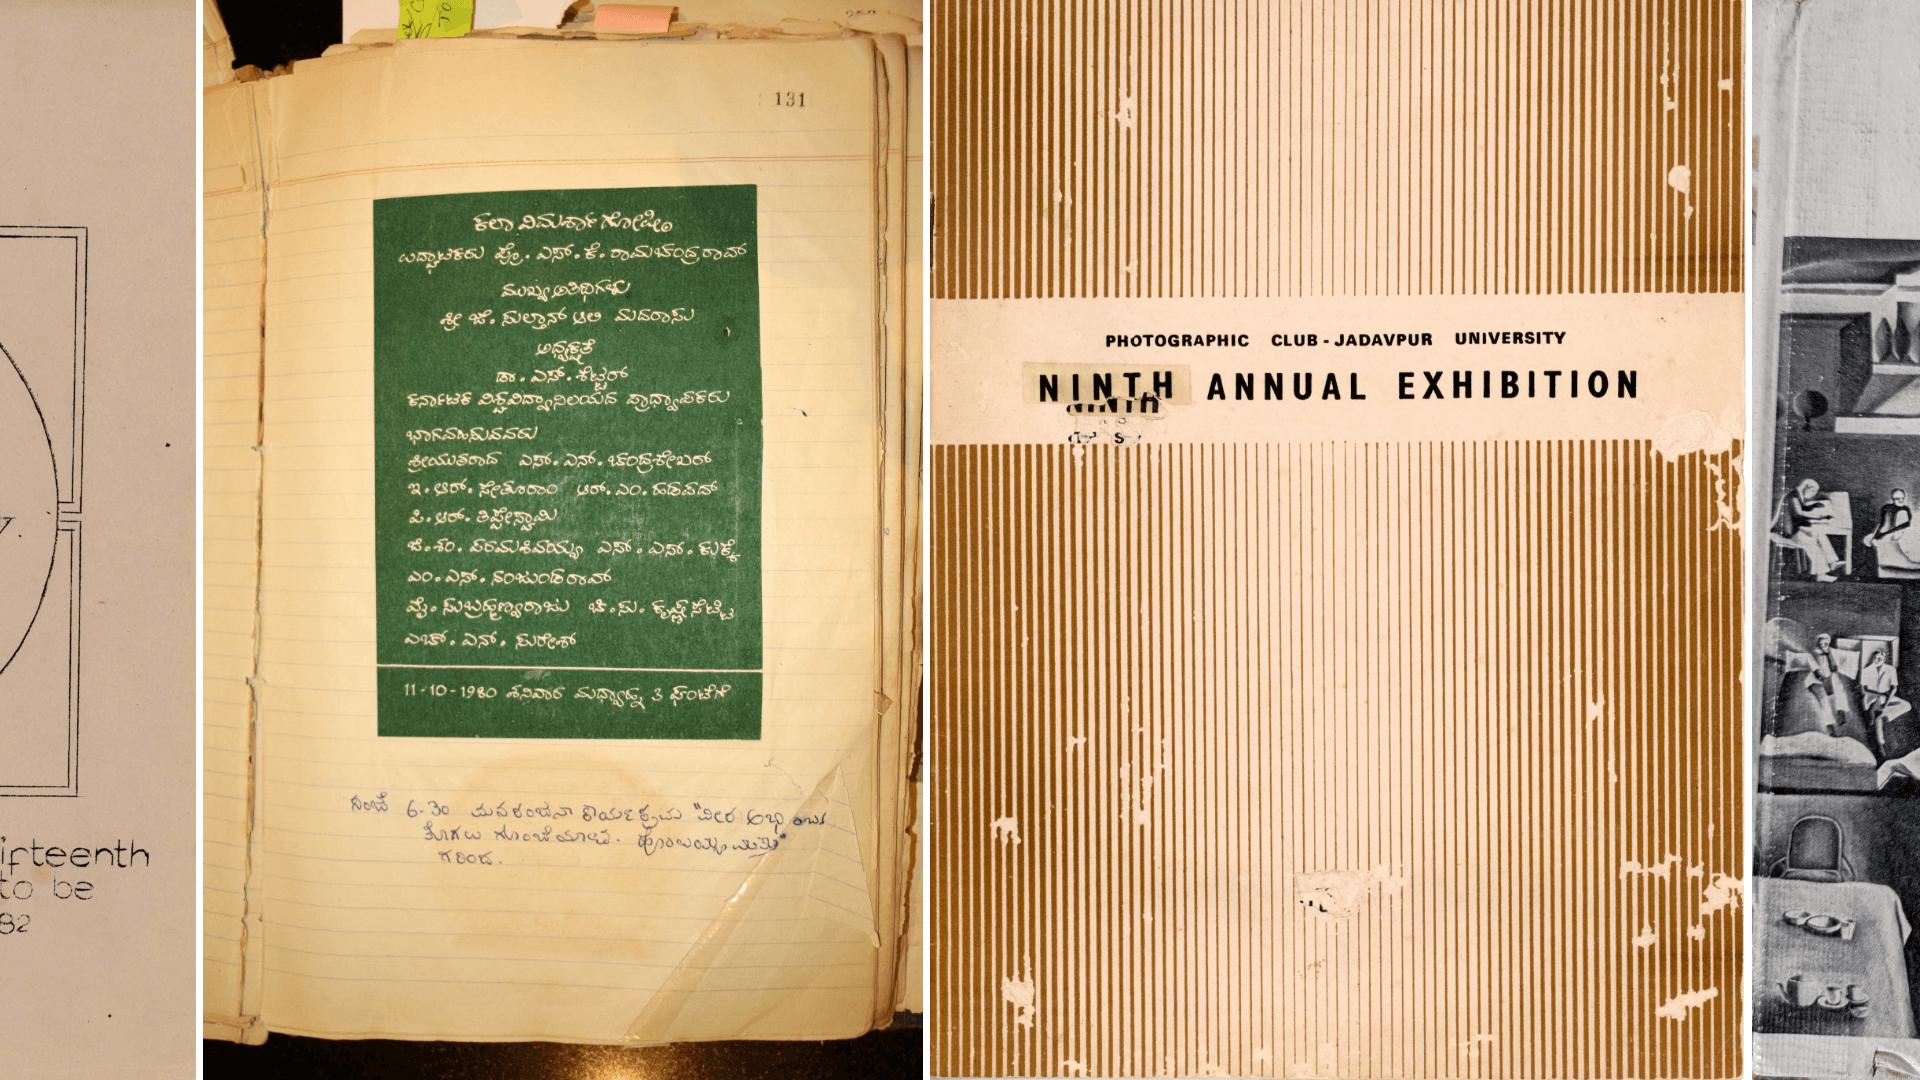 ifteenth
to be
82
TO
131
ಕಲಾ ವಿಮರ್ಶಾ ಗೋಷ್ಠಿ
ಉದ್ಘಾಟಕರು ಪ್ರೊ. ಎಸ್. ಕೆ. ರಾಮಚಂದ್ರರಾವ್
ಮುಖ್ಯ ಅತಿಥಿಗಳು
ಶ್ರೀ ಜೆ. ಸುಲ್ತಾನ್ ಆಲಿ ಮದರಾಸು
ಅಧ್ಯಕ್ಷತೆ
ಡಾ. ಎಸ್. ಶೆಟ್ಟರ್
ಕರ್ನಾಟಕ ವಿಶ್ವವಿದ್ಯಾನಿಲಯದ ಪ್ರಾಧ್ಯಾಪಕರು
ಭಾಗವಹಿಸುವವರು
ಶ್ರೀಯುತರಾದ ಎಸ್. ಎನ್. ಚಂದ್ರಶೇಖರ್
ಇ. ಆರ್. ಸೇತೂರಾಂ ಆರ್. ಎಂ. ಹಡಪದ್
ಪಿ. ಆರ್. ತಿಪ್ಪೇಸ್ವಾಮಿ
ಜಿ.ಶಂ. ಪರಮಶಿವಯ್ಯ ಎಸ್. ಎಸ್. ಕುಕ್ಕೆ
ಎಂ. ಎಸ್. ನಂಜುಂಡರಾವ್
ವೈ. ಸುಬ್ರಹ್ಮಣ್ಯರಾಜು ಚಿ.ಸು. ಕೃಷ್ಣಸೆಟ್ಟಿ
ಎಚ್. ಎನ್. ಸುರೇಶ್
11-10-1980 ಶನಿವಾರ ಮಧ್ಯಾಹ್ನ 3 ಘಂಟೆಗೆ
ಸಂಜೆ 6-30 ಮನರಂಜನಾ ಕಾರ್ಯಕ್ರಮ "ವೀರ
ತೊಗಲು ಗೊಂಬೆಯಾಟ.
ಗರಿಂದ.
PHOTOGRAPHIC CLUB - JADAVPUR UNIVERSITY
NINTH ANNUAL EXHIBITION
NINTH